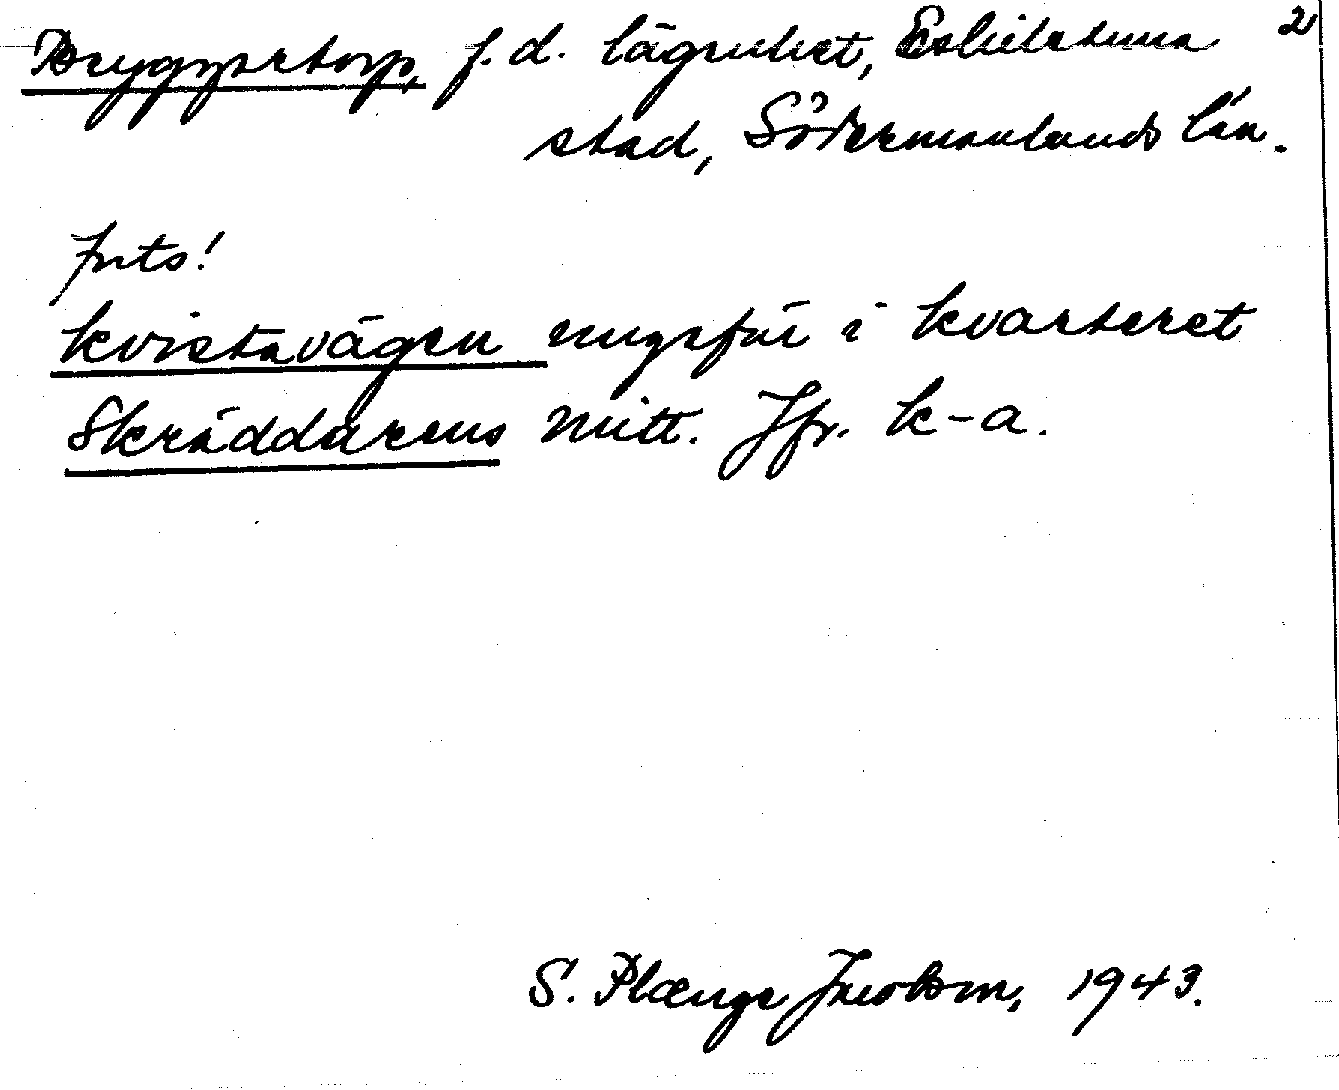 Bryggartorp, f.d. lägenhet, Eskilstuna 2
stad, Södermanlands län.
forts!
kvistavägen ungefär i kvarteret
Skräddarens mitt. Jfr. k-a.
S. Plænge Jacobson, 1943.